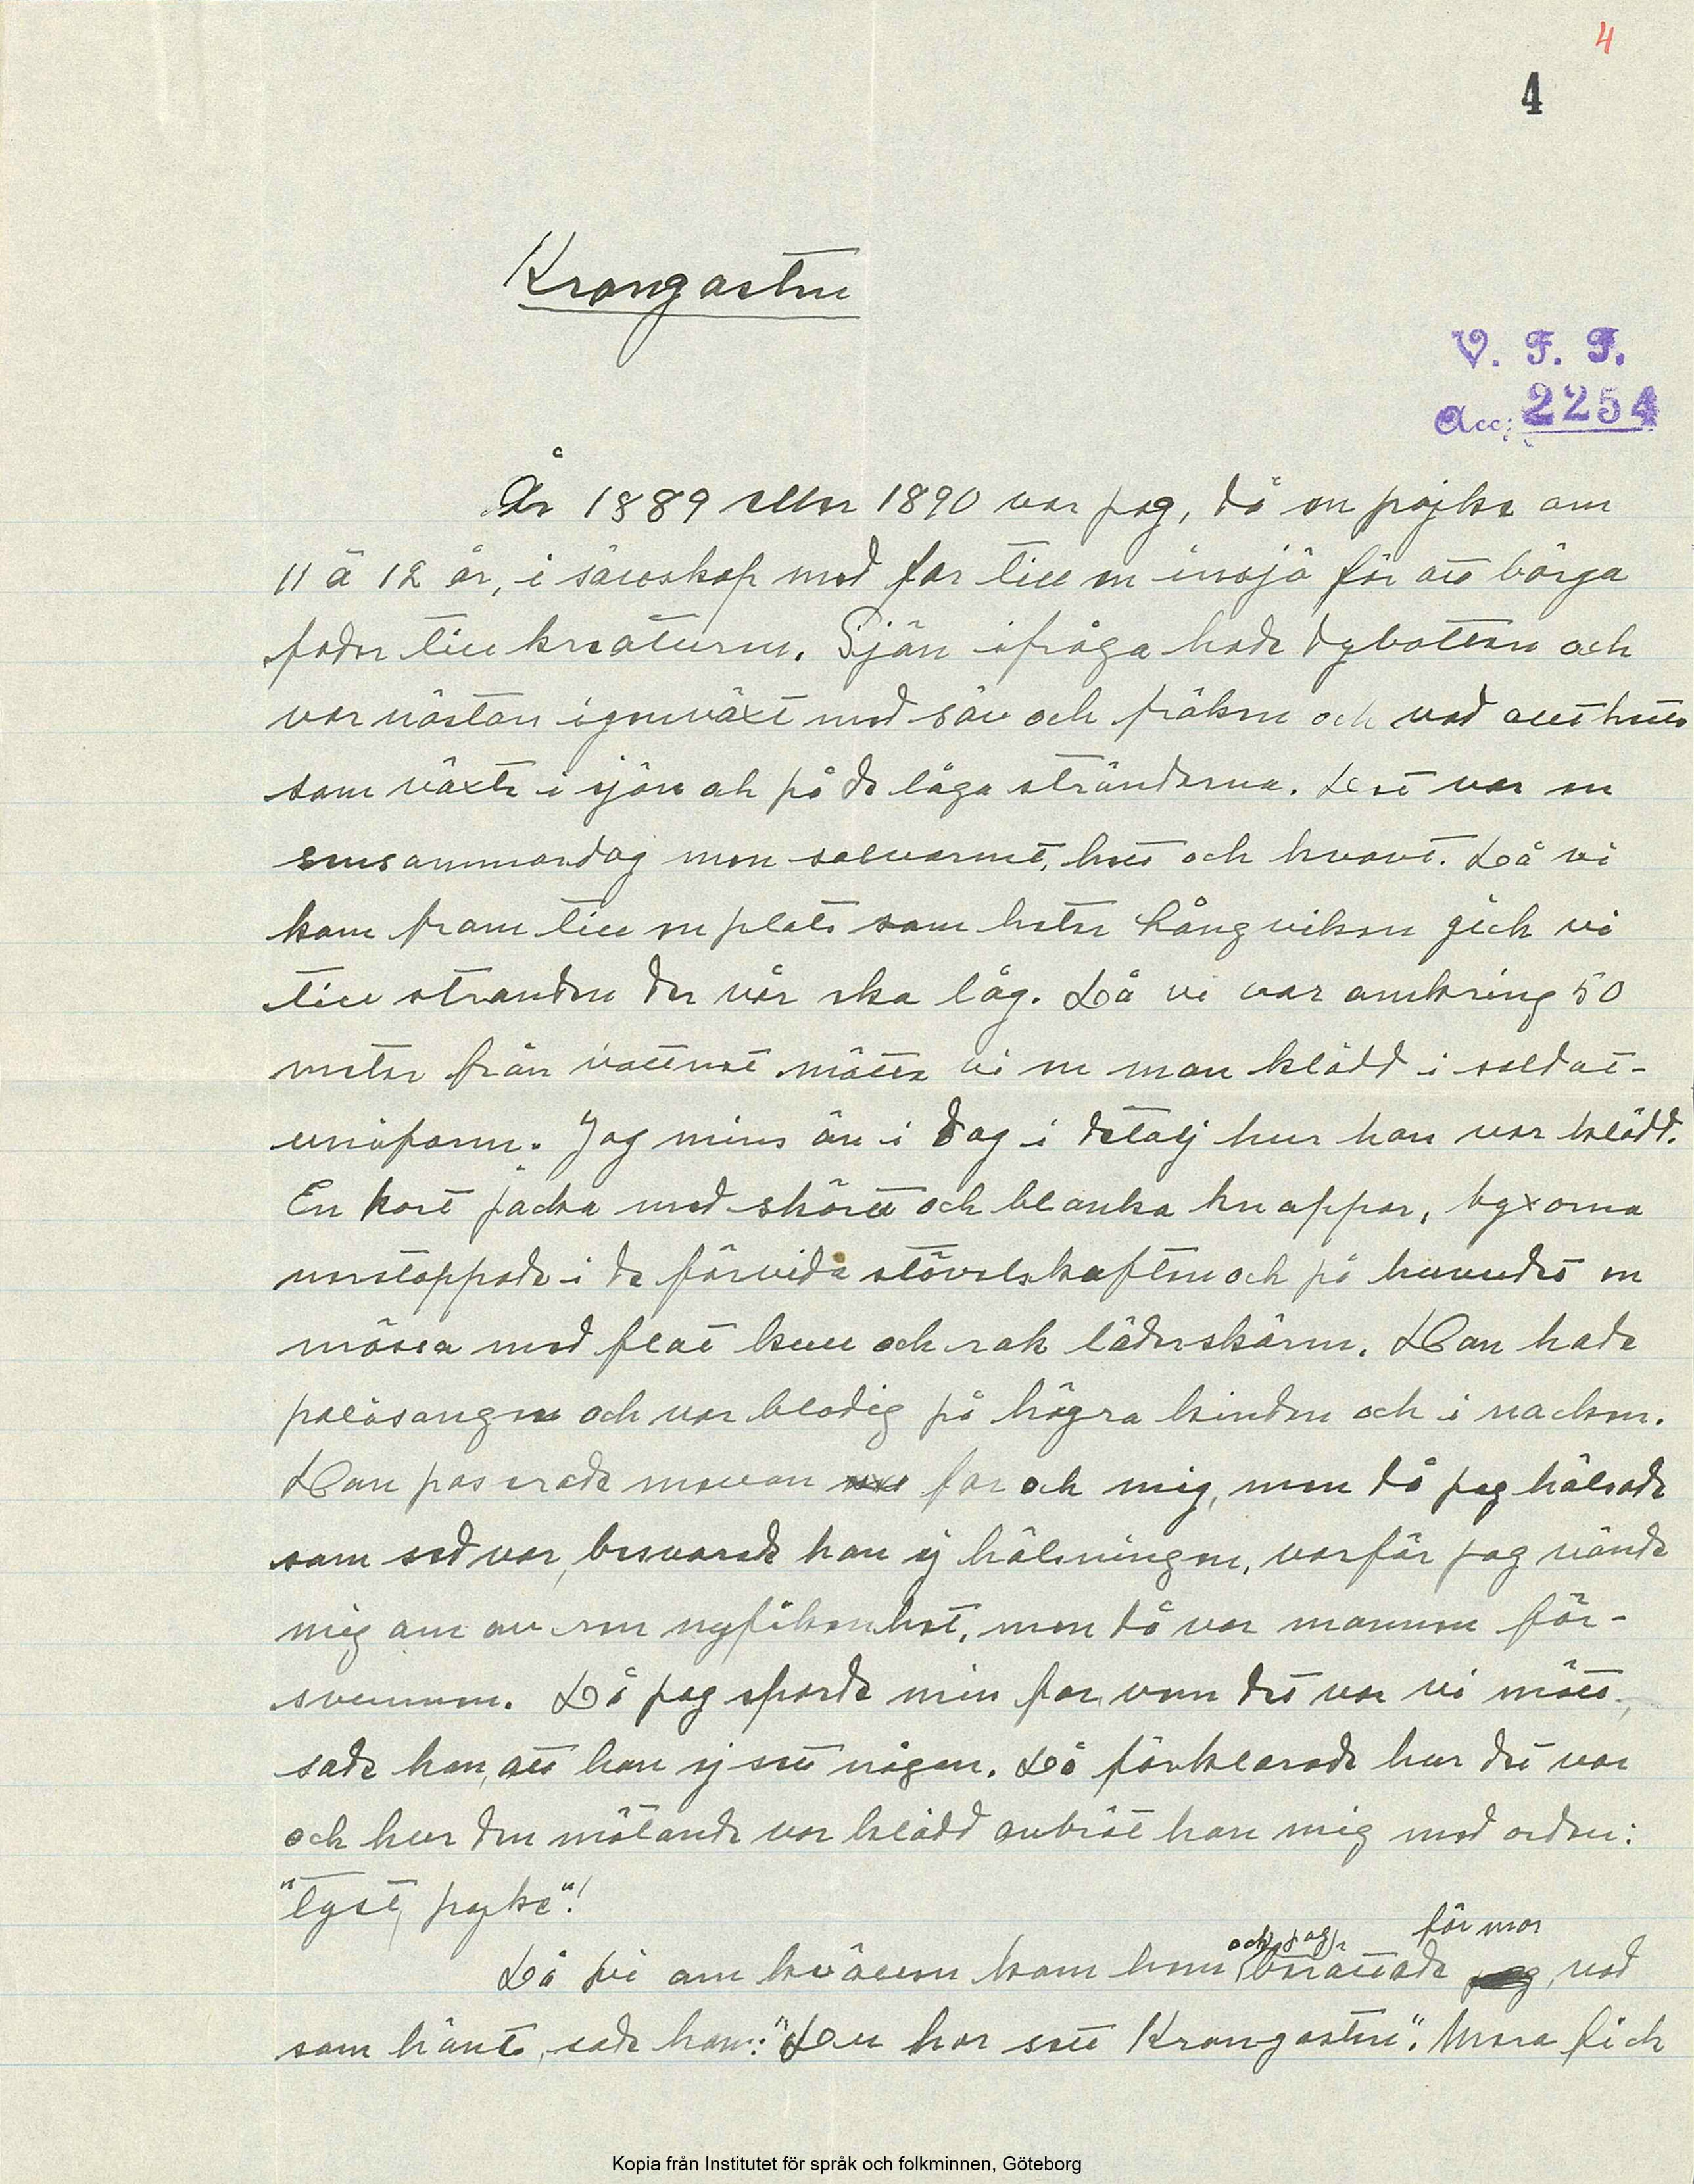 4
4
Krongasten
V. F. F.
Acc: 2254
År 1889 eller 1890 var jag, då en pojke om
11 à 12 år, i sällskap med far till en insjö för att börga
foder till kreaturen. Sjön ifråga hade dybotten och
var nästan igenväxt med säv och fräken och vad allt hette
som växte i sjön oh på de låga stränderna. Det var en
sensommardag men solvarmt, hett och kvavt. Då vi
kom fram till en plats som heter Långviken gick vi
till stranden der vår eka låg. Då vi var omkring 50
meter från vattnet mötte vi en man klädd i soldat-
uniform. Jag mins än i dag i detalj hur han var klädd.
En kort jacka med skört och blanka knappar, byxorna
nerstoppade i de förvida stövelskaften och på huvudet en
mössa med flat kull och rak läderskärm. Han hade
polisonger och var blodig på högra kinden och i nacken.
Han paserade mellan far och mig, men då jag hälsade
som sed var, besvarade han ej hälsningen, varför jag vände
mig om av ren nyfikenhet, men då var mannen för-
svunnen. Då jag sporde min far vem det var vi mött,
sade han, att han ej sett någon. Då förklarade hur det var
och hur den mötande var klädd avbröt han mig med orden:
"Tyst, pojke"!
Då vi om kvällen kom hem och jag berättade för mor, vad
som hänt, sade hon: "Du har sett Krongasten". Mera fick
Kopia från Institutet för språk och folkminnen, Göteborg